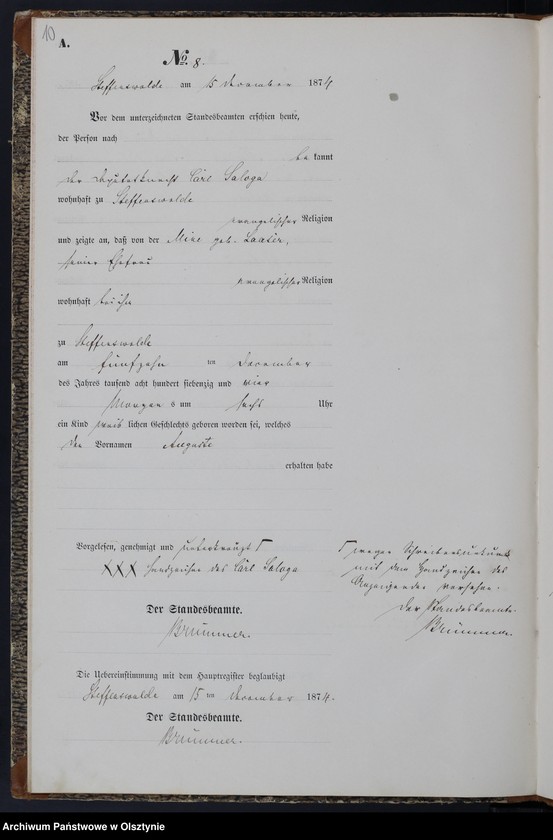 10
A.
No. 8.
Steffenswalde am 15 December 1874
Vor dem unterzeichneten Standesbeamten erschien heute,
der Person nach
be kannt
der Deputatknecht Carl Saloga
wohnhaft zu Steffenswalde
evangelischer Religion
und zeigte an, daß von der Mine geb. Laaser,
seiner Ehefrau
evangelischer Religion
wohnhaft bei ihm
zu Steffenswalde
am fünfzehn ten December
des Jahres tausend acht hundert siebenzig und vier
Morgen s um sechs Uhr
ein Kind weib lichen Geschlechts geboren worden sei, welches
den Vornamen Auguste
erhalten habe
Vorgelesen, genehmigt und unterkreuzt
XXX Handzeichen des Carl Saloga
Der Standesbeamte.
Brümmer.
wegen Schreibensunkunde
mit dem Handzeichen des
Anzeigenden versehen.
Der Standesbeamte.
Brümmer.
Die Uebereinstimmung mit dem Hauptregister beglaubigt
Steffenswalde am 15 ten December 1874.
Der Standesbeamte.
Brümmer.
Archiwum Państwowe w Olsztynie